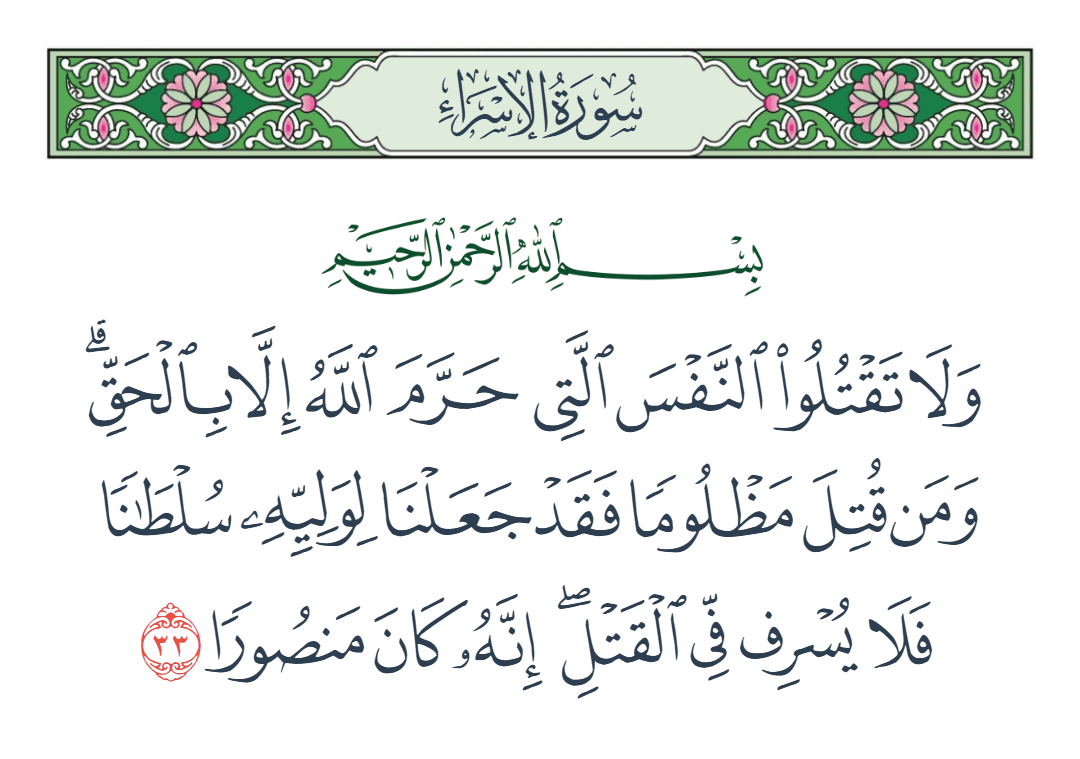 سُورَةُ الإِسْرَاءِ
بِسْمِ ٱللَّهِ ٱلرَّحْمَٰنِ ٱلرَّحِيمِ
وَلَا تَقْتُلُوا۟ ٱلنَّفْسَ ٱلَّتِى حَرَّمَ ٱللَّهُ إِلَّا بِٱلْحَقِّ ۗ
وَمَن قُتِلَ مَظْلُومًا فَقَدْ جَعَلْنَا لِوَلِيِّهِۦ سُلْطَٰنًا
فَلَا يُسْرِف فِّى ٱلْقَتْلِ ۖ إِنَّهُۥ كَانَ مَنصُورًا ٣٣